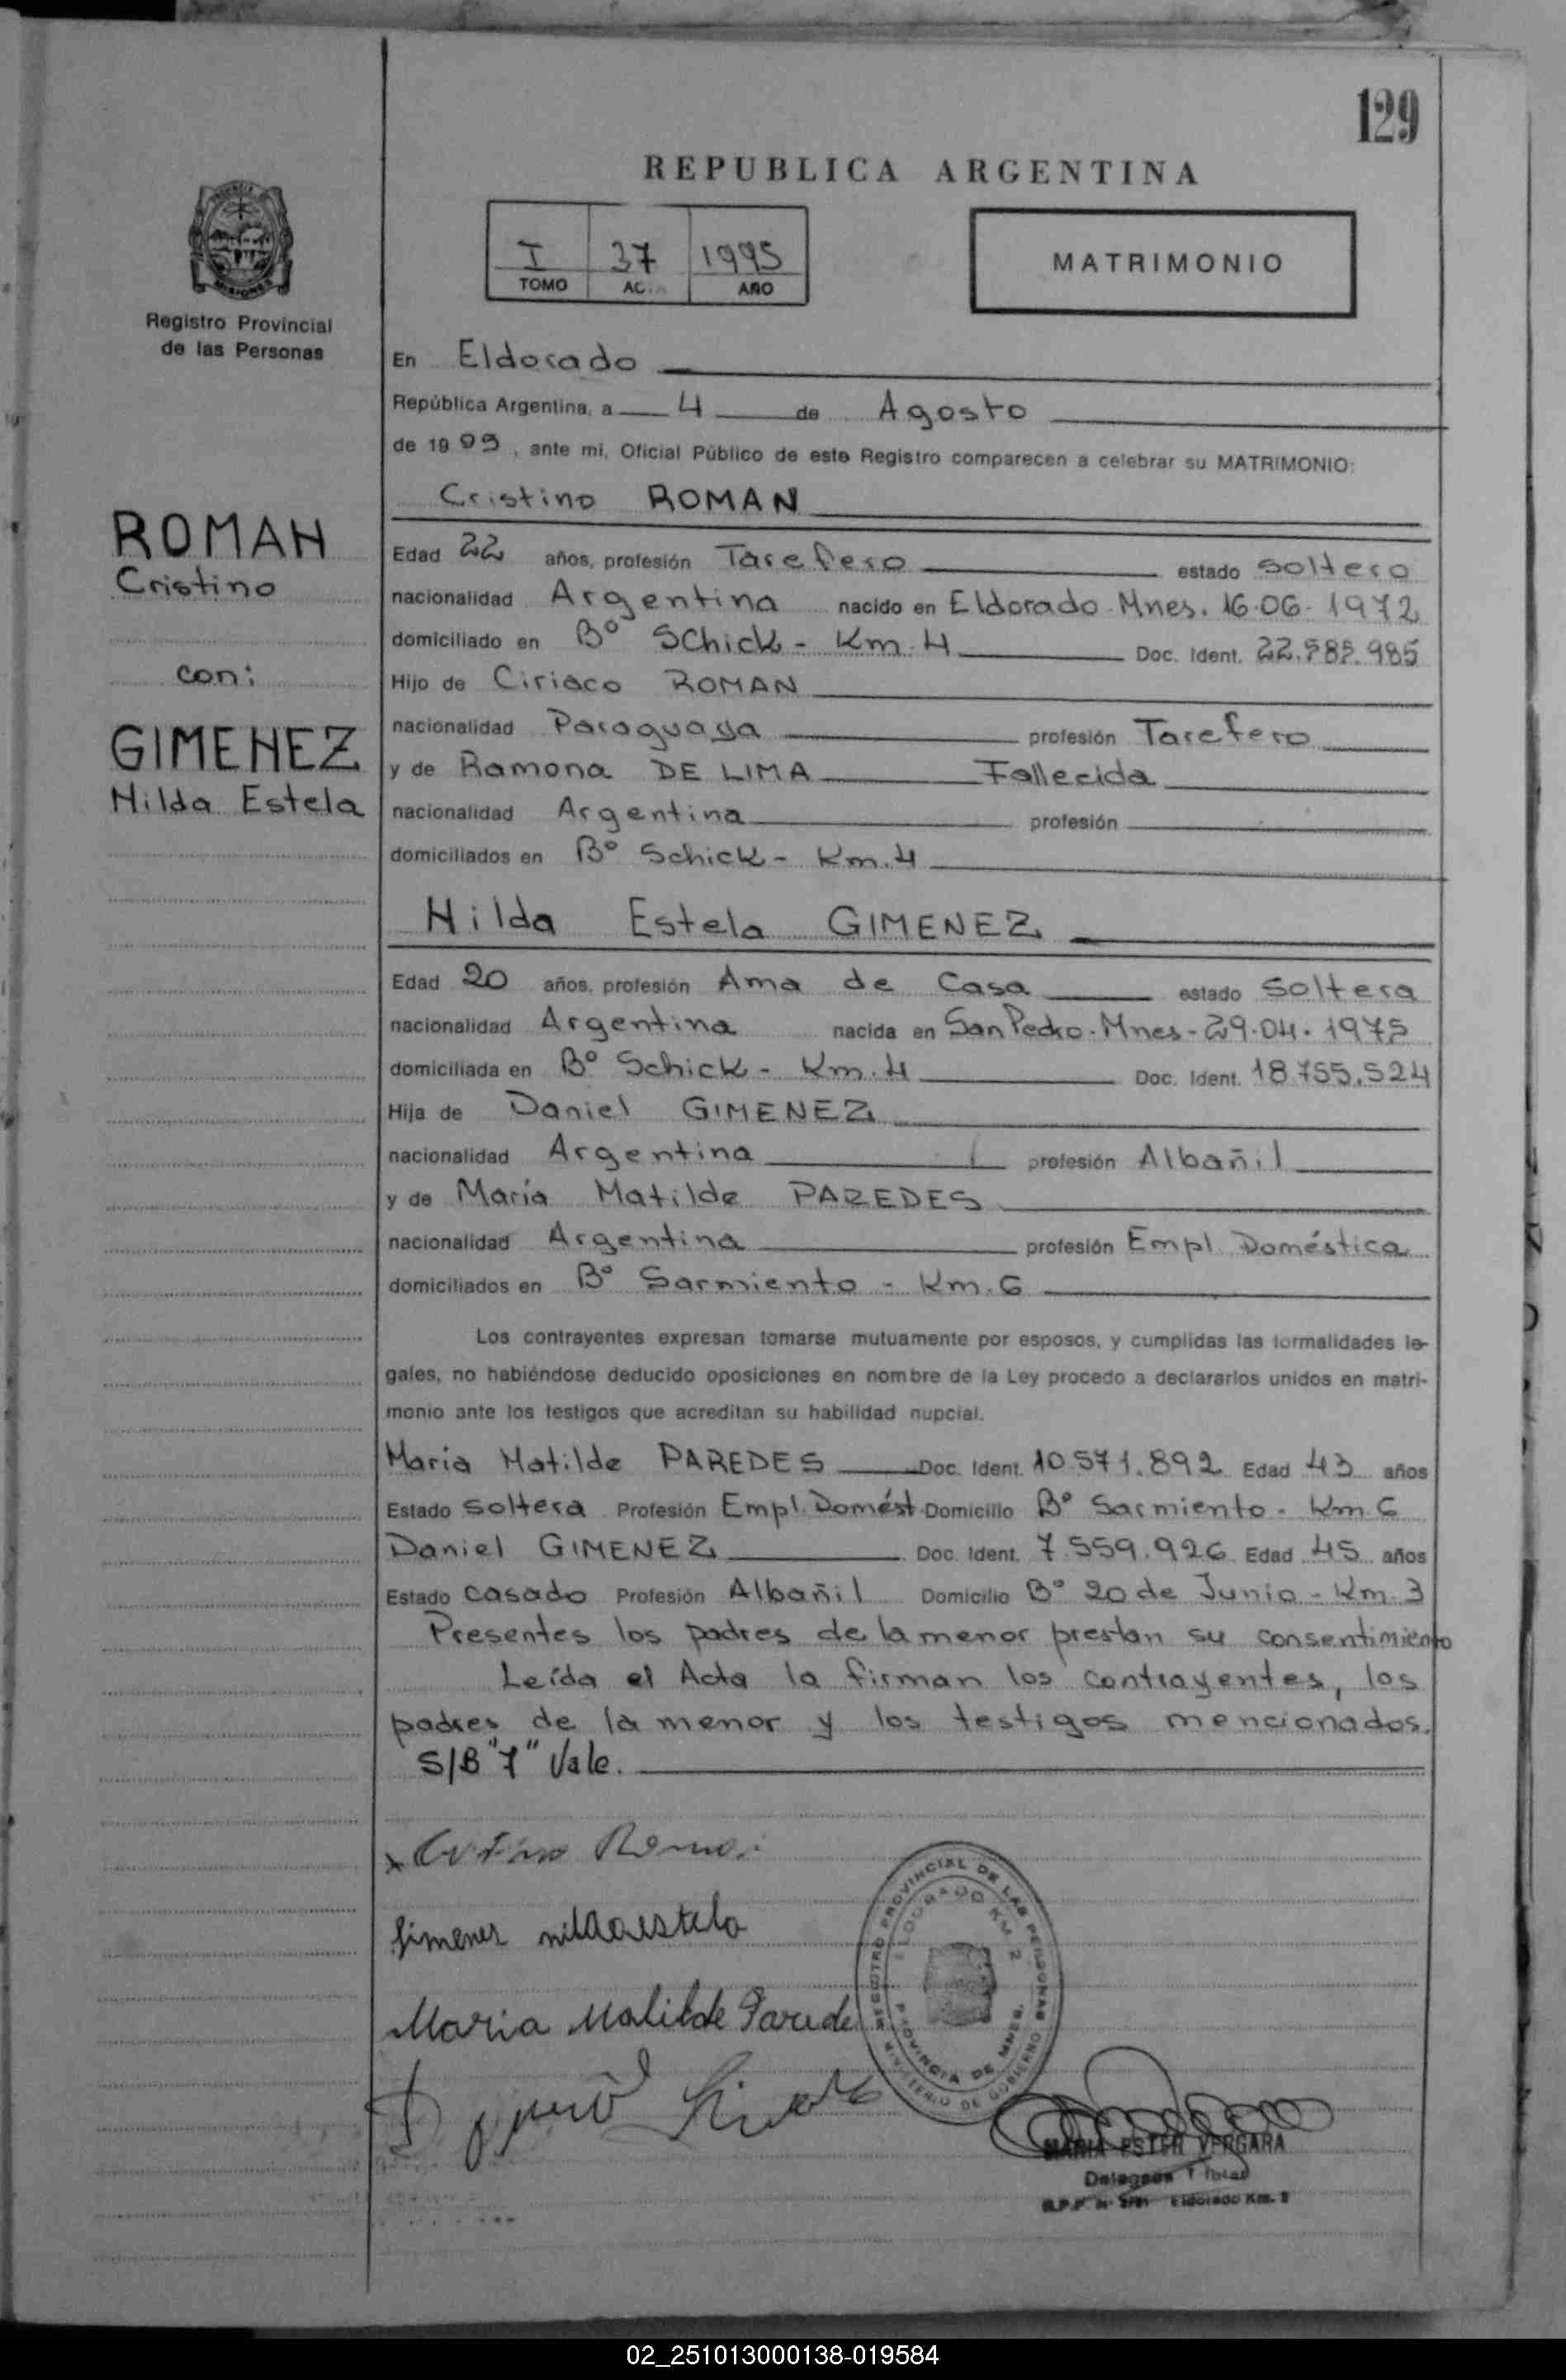 129
REPUBLICA ARGENTINA
I 37 1995
TOMO AÑO
MATRIMONIO
MISIONES
Registro Provincial
de las Personas
En Eldorado
República Argentina, a 4 de Agosto
de 1995, ante mi, Oficial Público de este Registro comparecen a celebrar su MATRIMONIO:
Cristino ROMAN
ROMAN
Cristino
con:
GIMENEZ
Hilda Estela
Edad 22 años, profesión Tarefero estado soltero
nacionalidad Argentina nacido en Eldorado-Mnes. 16-06-1972
domiciliado en Bº Schick - Km. 4 Doc. Ident.
Hijo de Ciriaco ROMAN
nacionalidad Paraguaya profesión Tarefero
y de Ramona DE LIMA Fallecida
nacionalidad Argentina profesión
domiciliados en Bº Schick - Km. 4
Hilda Estela GIMENEZ
Edad 20 años, profesión Ama de Casa estado soltera
nacionalidad Argentina nacida en San Pedro-Mnes-29-04-1975
domiciliada en Bº Schick - Km. 4 Doc. Ident. 18.755.524
Hija de Daniel GIMENEZ
nacionalidad Argentina profesión Albañil
y de María Matilde PAREDES
nacionalidad Argentina profesión Empl. Doméstica
domiciliados en Bº Sarmiento - Km. 6
Los contrayentes expresan tomarse mutuamente por esposos, y cumplidas las formalidades le-
gales, no habiéndose deducido oposiciones en nombre de la Ley procedo a declararlos unidos en matri-
monio ante los testigos que acreditan su habilidad nupcial.
María Matilde PAREDES Doc. Ident. 10.571.892 Edad 43 años
Estado soltera Profesión Empl. Domést. Domicilio Bº Sarmiento - Km. 6
Daniel GIMENEZ Doc. Ident. 7.559.926 Edad 45 años
Estado casado Profesión Albañil Domicilio Bº 20 de Junio - Km. 3
Presentes los padres de la menor prestan su consentimiento
Leída el Acta la firman los contrayentes, los
padres de la menor y los testigos mencionados.
S/B "7" Vale.
Maria Matilde Parede
REGISTRO PROVINCIAL DE LAS PERSONAS
ELDORADO KM 2
PROVINCIA DE MNES.
MINISTERIO DE GOBIERNO
MARIA ESTER VERGARA
Eldorado Km. 2
02_251013000138-019584